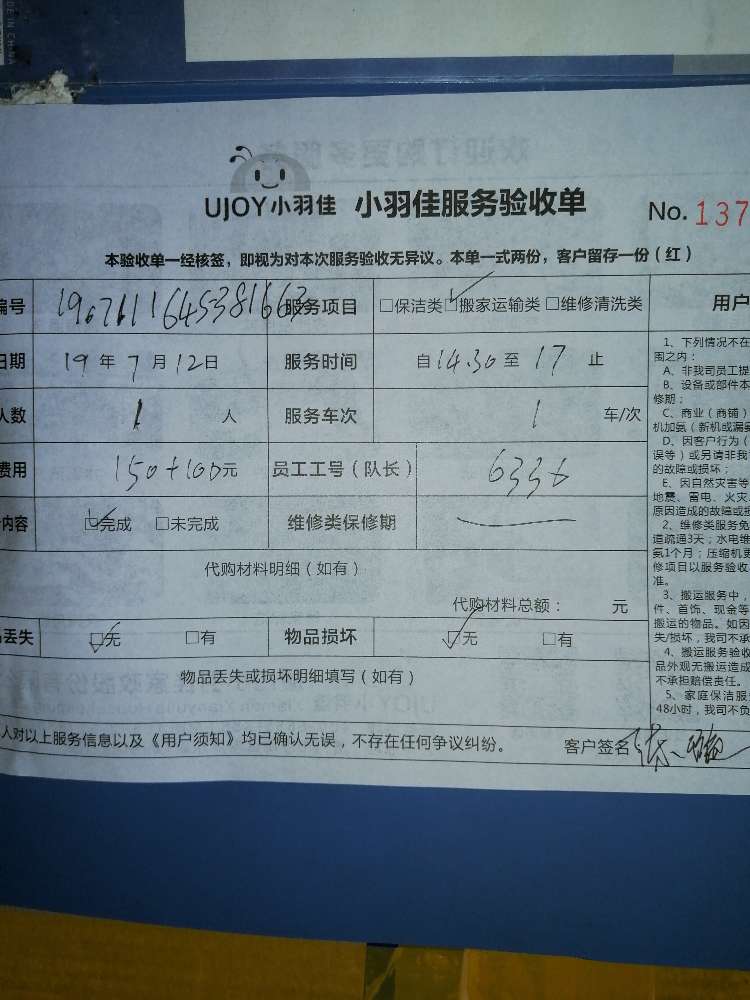 MADE IN CHINA
UJOY小羽佳 小羽佳服务验收单 No. 137
本验收单一经核签，即视为对本次服务验收无异议。本单一式两份，客户留存一份（红）
编号 服务项目 □保洁类□搬家运输类□维修清洗类 用户
日期 19年7月12日 服务时间 自14.30至17止
人数 1人 服务车次 1车/次
费用 150+100元 员工工号（队长） 6336
内容 □完成 □未完成 维修类保修期
代购材料明细（如有）
代购材料总额： 元
丢失 □无 □有 物品损坏 □无 □有
物品丢失或损坏明细填写（如有）
人对以上服务信息以及《用户须知》均已确认无误，不存在任何争议纠纷。 客户签名
1、下列情况不在
围之内：
A、非我司员工提
B、设备或部件本
修期；
C、商业（商铺）
机加氨（新机或漏氨
D、因客户行为（
误等）或另请非我
的故障或损坏；
E、因自然灾害等
地震、雷电、火灾、
原因造成的故障或损
2、维修类服务免
道疏通3天；水电维
氨1个月；压缩机更
修项目以服务验收
准。
3、搬运服务中，
件、首饰、现金等
搬运的物品。如因
失/损坏，我司不承
4、搬运服务验收
品外观无搬运造成
不承担赔偿责任。
5、家庭保洁服
48小时，我司不负